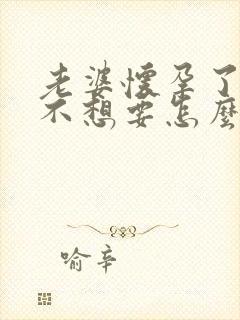 老婆懷孕了
不想要怎麼
喻辛